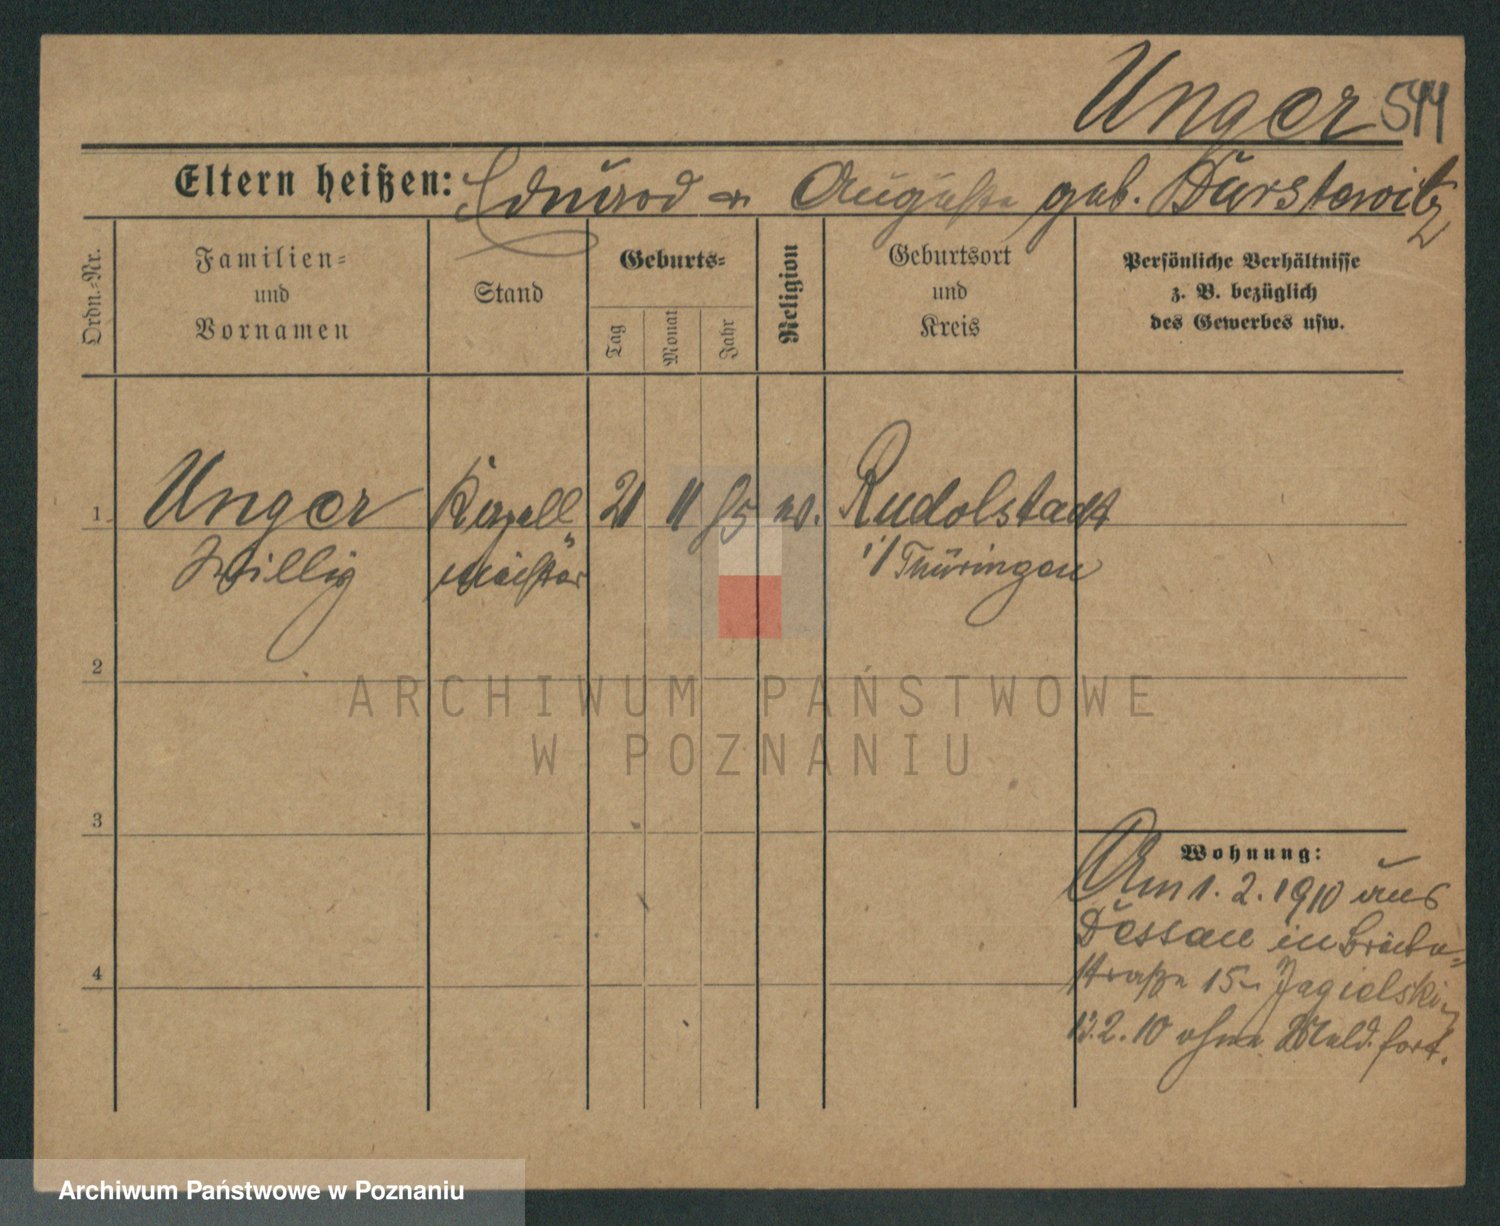 Unger 544
Eltern heißen: Eduard u Auguste geb. Burstewitz
Ordn.-Nr.
Familien-
und
Vornamen
Stand
Geburts-
Tag
Monat
Jahr
Religion
Geburtsort
und
Kreis
Persönliche Verhältnisse
z. B. bezüglich
des Gewerbes usw.
1 Unger Kapell 21 11 85 Rudolstadt
Willy meister i/Thüringen
2
ARCHIWUM PAŃSTWOWE
W POZNANIU
3
Wohnung:
Am 1. 2. 1910 aus
Dessau in
4
straße 15 Jagielski
13.2.10 ohne Meld. fort.
Archiwum Państwowe w Poznaniu